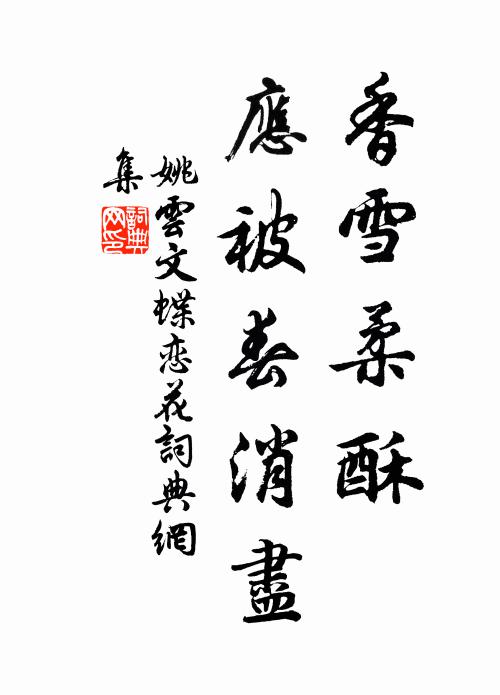 香雪柔酥
應被春消盡
姚雲文蝶恋花詞典網
集
詞典網印